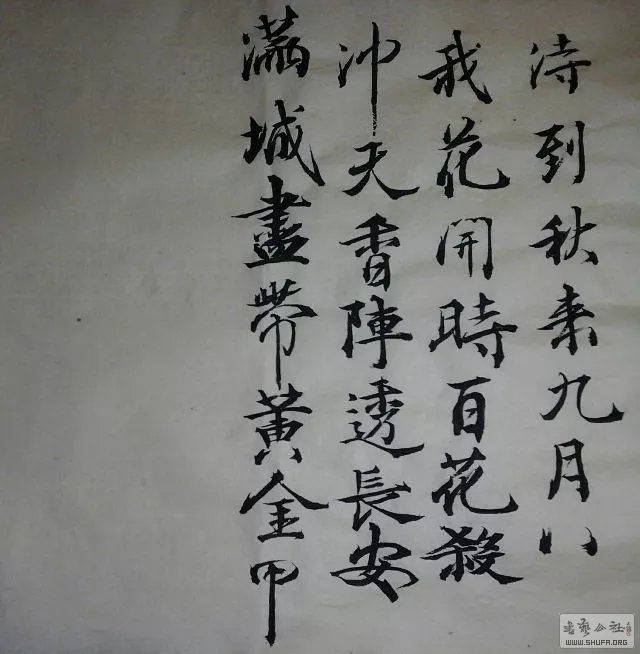 待到秋来九月八
我花開時百花殺
冲天香陣透長安
满城盡带黄金甲
書藝公社
WWW.SHUFA.ORG